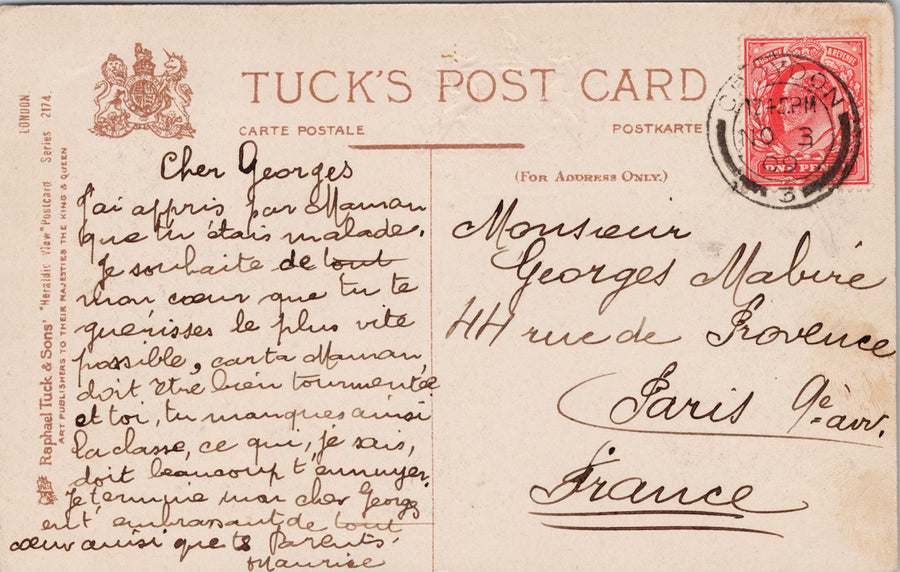 TUCK'S POST CARD
CARTE POSTALE
POSTKARTE
(FOR ADDRESS ONLY.)
LONDON.
Raphael Tuck & Sons' "Heraldic View" Postcard Series 2174.
ART PUBLISHERS TO THEIR MAJESTIES THE KING & QUEEN
POSTAGE & REVENUE
ONE PENNY
CROYDON
12.45PM
NO 3
09
3
Cher Georges
J'ai appris par Maman
que tu étais malade.
Je souhaite de tout
mon cœur que tu te
guérisses le plus vite
possible, car ta Maman
doit être bien tourmentée
et toi, tu manques ainsi
la classe, ce qui, je sais,
doit beaucoup t'ennuyer.
Je termine mon cher Georges
en t'embrassant de tout
cœur ainsi que ts Parents.
Maurice
Monsieur
Georges Mabiré
44 rue de Provence
Paris 9e arr.
France